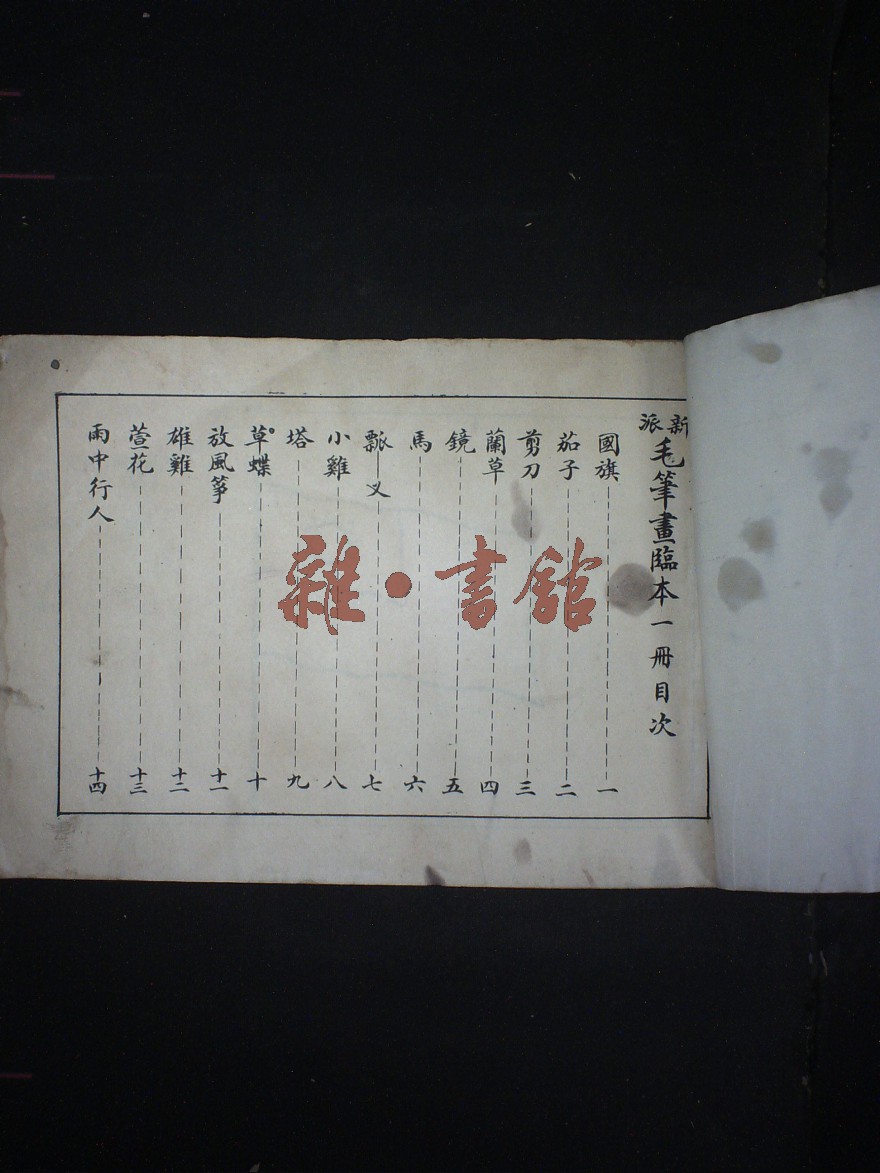 新派毛筆畫臨本一冊目次
國旗 一
茄子 二
剪刀 三
蘭草 四
鏡 五
馬 六
瓢 叉 七
小雞 八
塔 九
草。蝶 十
放風箏 十一
雄雞 十二
萱花 十三
雨中行人 十四
雜·書館